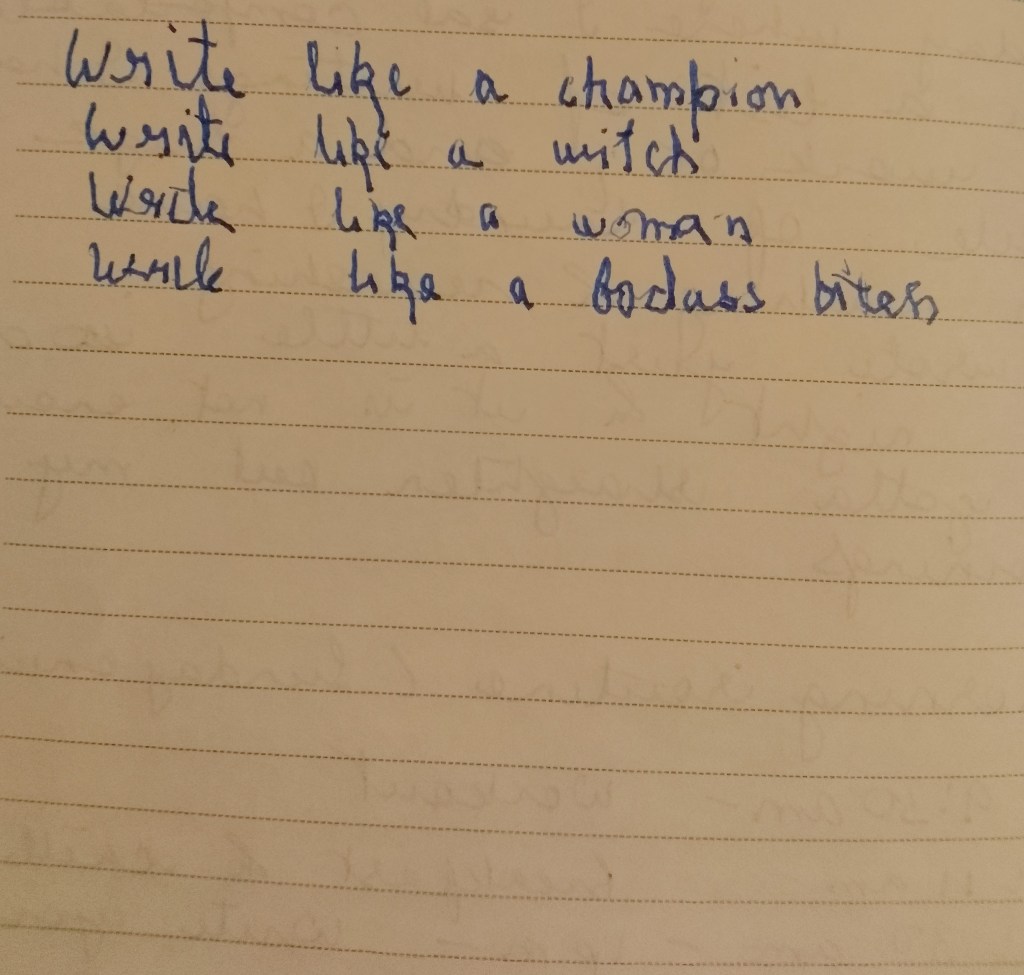 Write like a champion
Write like a witch
Write like a woman
Write like a badass bitch